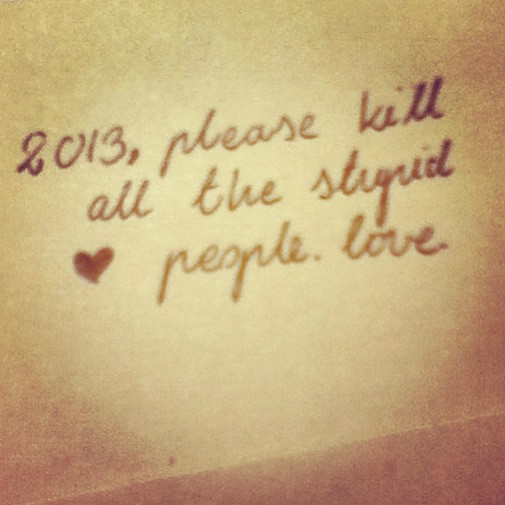 2013, please kill
all the stupid
♥ people. love.